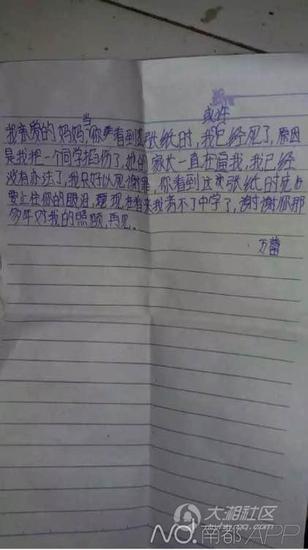 我亲爱的妈妈,当你看到这张纸时,我或许已经死了,原因
是我把一个同学掐伤了,她的家长一直在逼我,我已经
没有办法了,我只好以死谢罪,你看到这张纸的时
要止住你的眼泪,现在看来我考不了中学了,谢谢你那
么多年对我的照顾,再见。
大湘社区
NO.南都APP